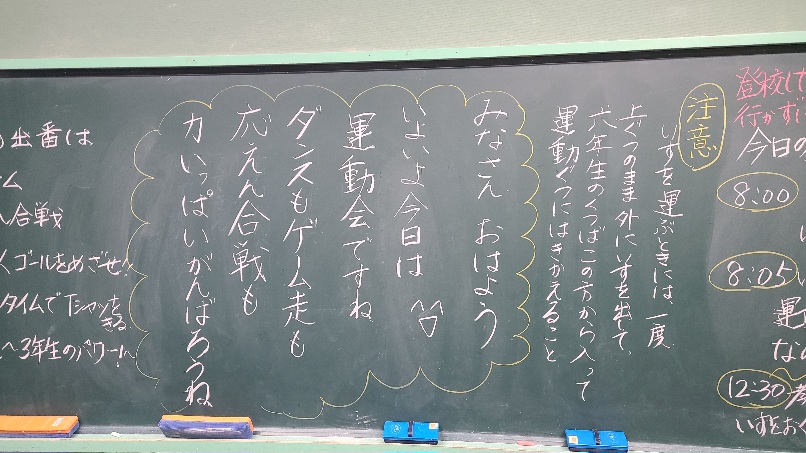 登校した
行かずに
今日の
8:00
8:05
12:30
いすをおく
注意
いすを運ぶときには、一度
上ぐつのまま外にいすを出して、
六年生のくつばこの方から入って
運動ぐつにはきかえること
みなさん おはよう
いよいよ今日は
運動会ですね
ダンスもゲーム走も
応えん合戦も
力いっぱいがんばろうね
出番は
ム
合戦
ゴールをめざせ!
タイムでTシャツをきる
～3年生のパワー!